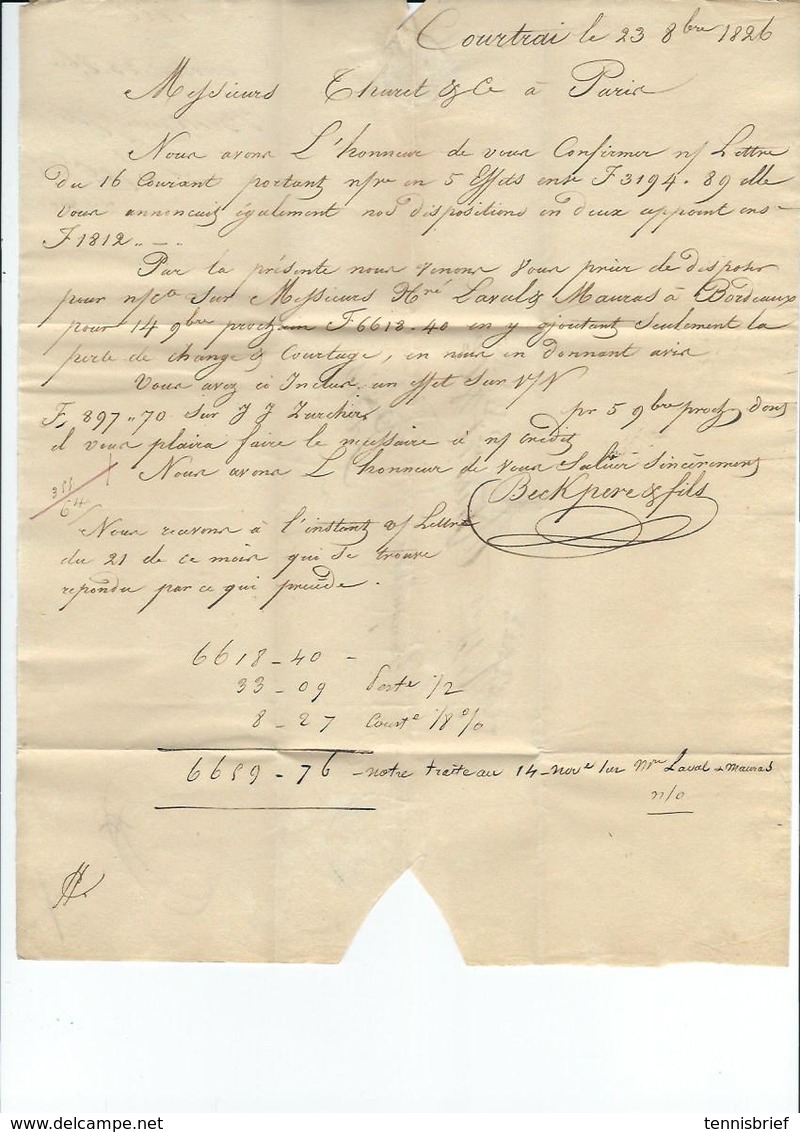 Courtrai le 23 8bre 1826
Messieurs Thuret & Ce à Paris
Nous avons L'honneur de vous Confirmer n/ Lettre
du 16 Courant portant n/re en 5 Effets ense F 3194.89 elle
vous annoncait également nos dispositions en deux appoint ens
F 1812 .. - .
Par la présente nous venons Vous prier de disposer
pour n/co Sur Messieurs Hré Laval & Mauras à Bordeaux
pour 14 9bre proch F 6618-40 en y ajoutant seulement la
perte de change & Courtage, en nous en donnant avis
Vous avez ci Inclus un effet Sur V/V
F. 897..70 Sur J J Zurcher pr 5 9bre proch dont
il vous plaira faire le nécessaire à n/ crédit
Nous avons L'honneur de vous Saluer Sincèrement
Beck pere & fils
64
Nous recevons à l'instant v/ Lettre
du 21 de ce mois qui se trouve
repondu par ce qui précède.
6618-40 -
33-09 perte 1/2
8-27 Courte 1/8 %
6659-76 - notre traite au 14 - nove sur Laval & Mauras
n/o